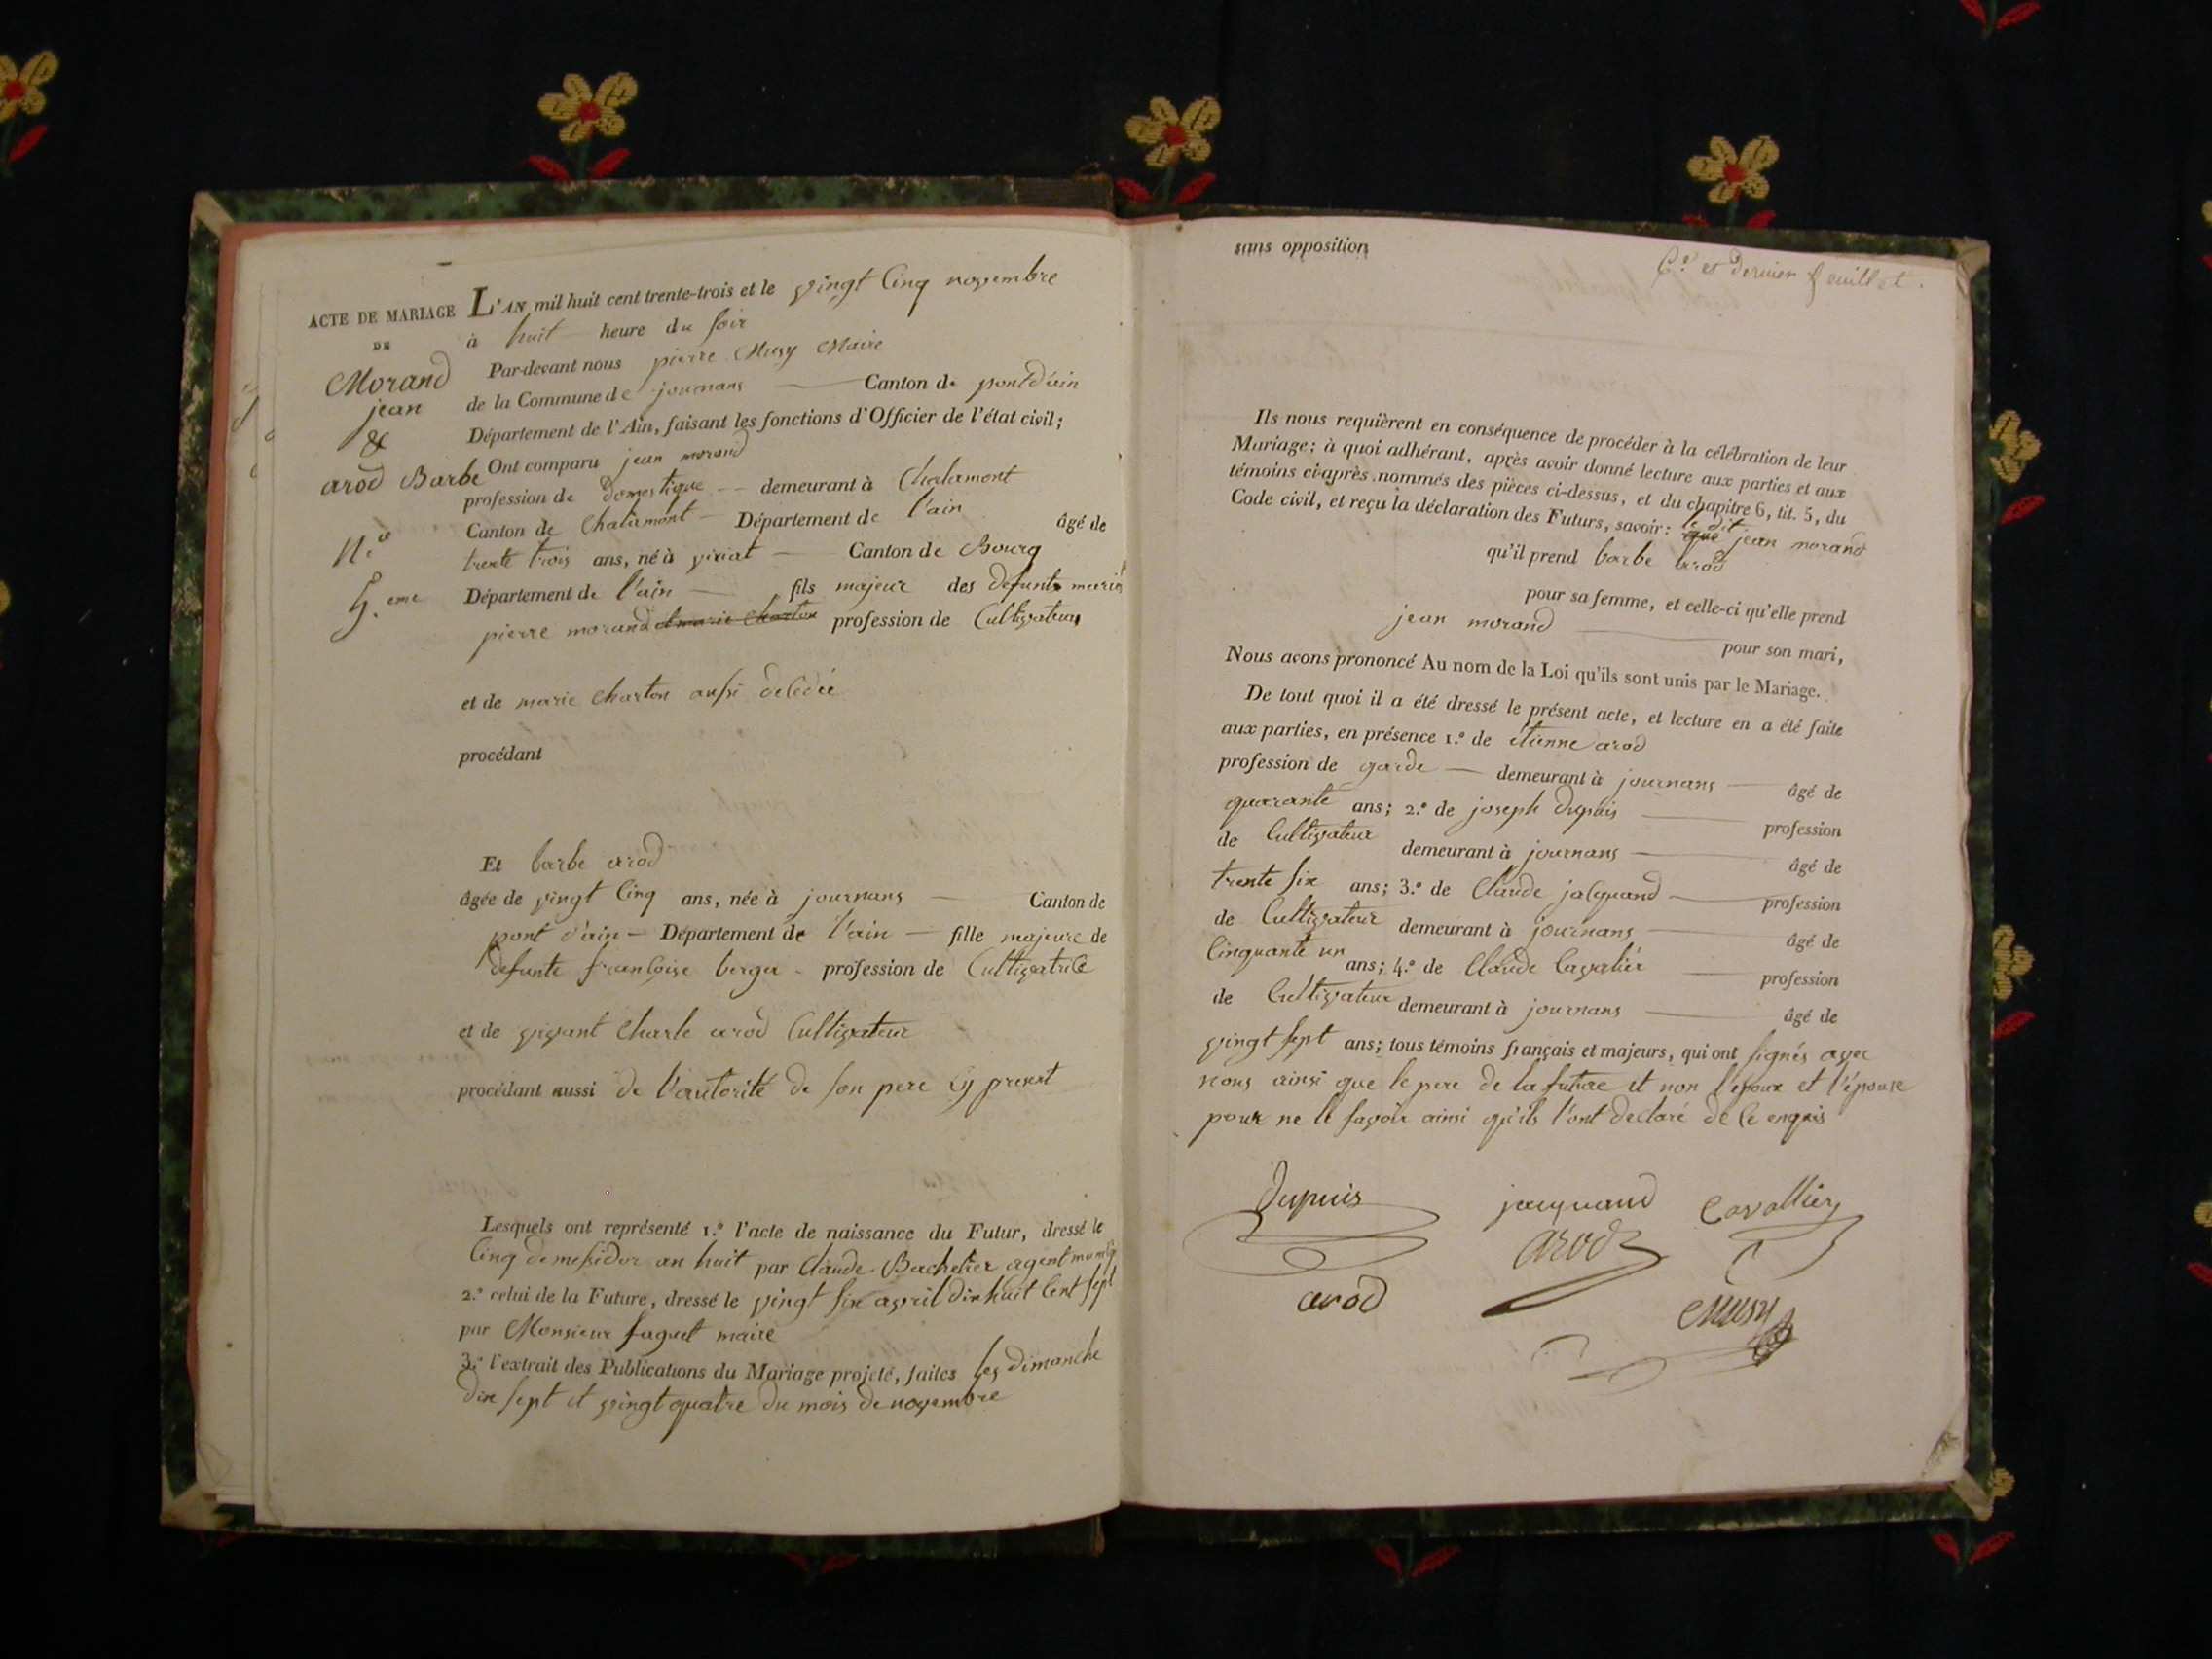 ACTE DE MARIAGE
DE
Morand
jean
&
arod Barbe
N.o
5.eme
L'AN mil huit cent trente-trois et le vingt Cinq novembre
à huit heure du soir
Par-devant nous pierre Musy Maire
de la Commune de journans Canton de pont d'ain
Département de l'Ain, faisant les fonctions d'Officier de l'état civil;
Ont comparu jean morand
profession de domestique demeurant à Chalamont
Canton de Chalamont Département de l'ain âgé de
trente trois ans, né à viriat Canton de Bourg
Département de l'ain fils majeur des defunts
pierre morand et marie Charton profession de Cultivateur
et de marie Charton aussi
procédant
Et barbe arod
âgée de vingt Cinq ans, née à journans Canton de
pont d'ain Département de l'ain fille majeure de
defunte françoise berger profession de Cultivatrice
et de vivant Charle arod Cultivateur
procédant aussi de l'autorité de son pere Cy present
Lesquels ont représenté 1.º l'acte de naissance du Futur, dressé le
Cinq de messidor an huit par Claude Bachelier agent
2.º celui de la Future, dressé le vingt six avril dix huit Cent sept
par Monsieur faguet maire
3.º l'extrait des Publications du Mariage projeté, faites les dimanche
dix sept et vingt quatre du mois de novembre
sans opposition
6.e et dernier feuillet.
Ils nous requièrent en conséquence de procéder à la célébration de leur
Mariage; à quoi adhérant, après avoir donné lecture aux parties et aux
témoins ci-après nommés des pièces ci-dessus, et du chapitre 6, tit. 5, du
Code civil, et reçu la déclaration des Futurs, savoir: le dit jean morand
qu'il prend barbe arod
pour sa femme, et celle-ci qu'elle prend
jean morand
pour son mari,
Nous avons prononcé Au nom de la Loi qu'ils sont unis par le Mariage.
De tout quoi il a été dressé le présent acte, et lecture en a été faite
aux parties, en présence 1.º de etienne arod
profession de garde demeurant à journans âgé de
quarante ans; 2.º de joseph Dupuis profession
de Cultivateur demeurant à journans âgé de
trente six ans; 3.º de Claude jalquand profession
de Cultivateur demeurant à journans âgé de
Cinquante un ans; 4.º de Claude Cavalier profession
de Cultivateur demeurant à journans âgé de
vingt sept ans; tous témoins français et majeurs, qui ont signés avec
nous ainsi que le pere de la future et non l'epoux et l'épouse
pour ne le savoir ainsi qu'ils l'ont declaré de ce enquis
Dupuis jacquand Cavallier
arod
arod
Musy